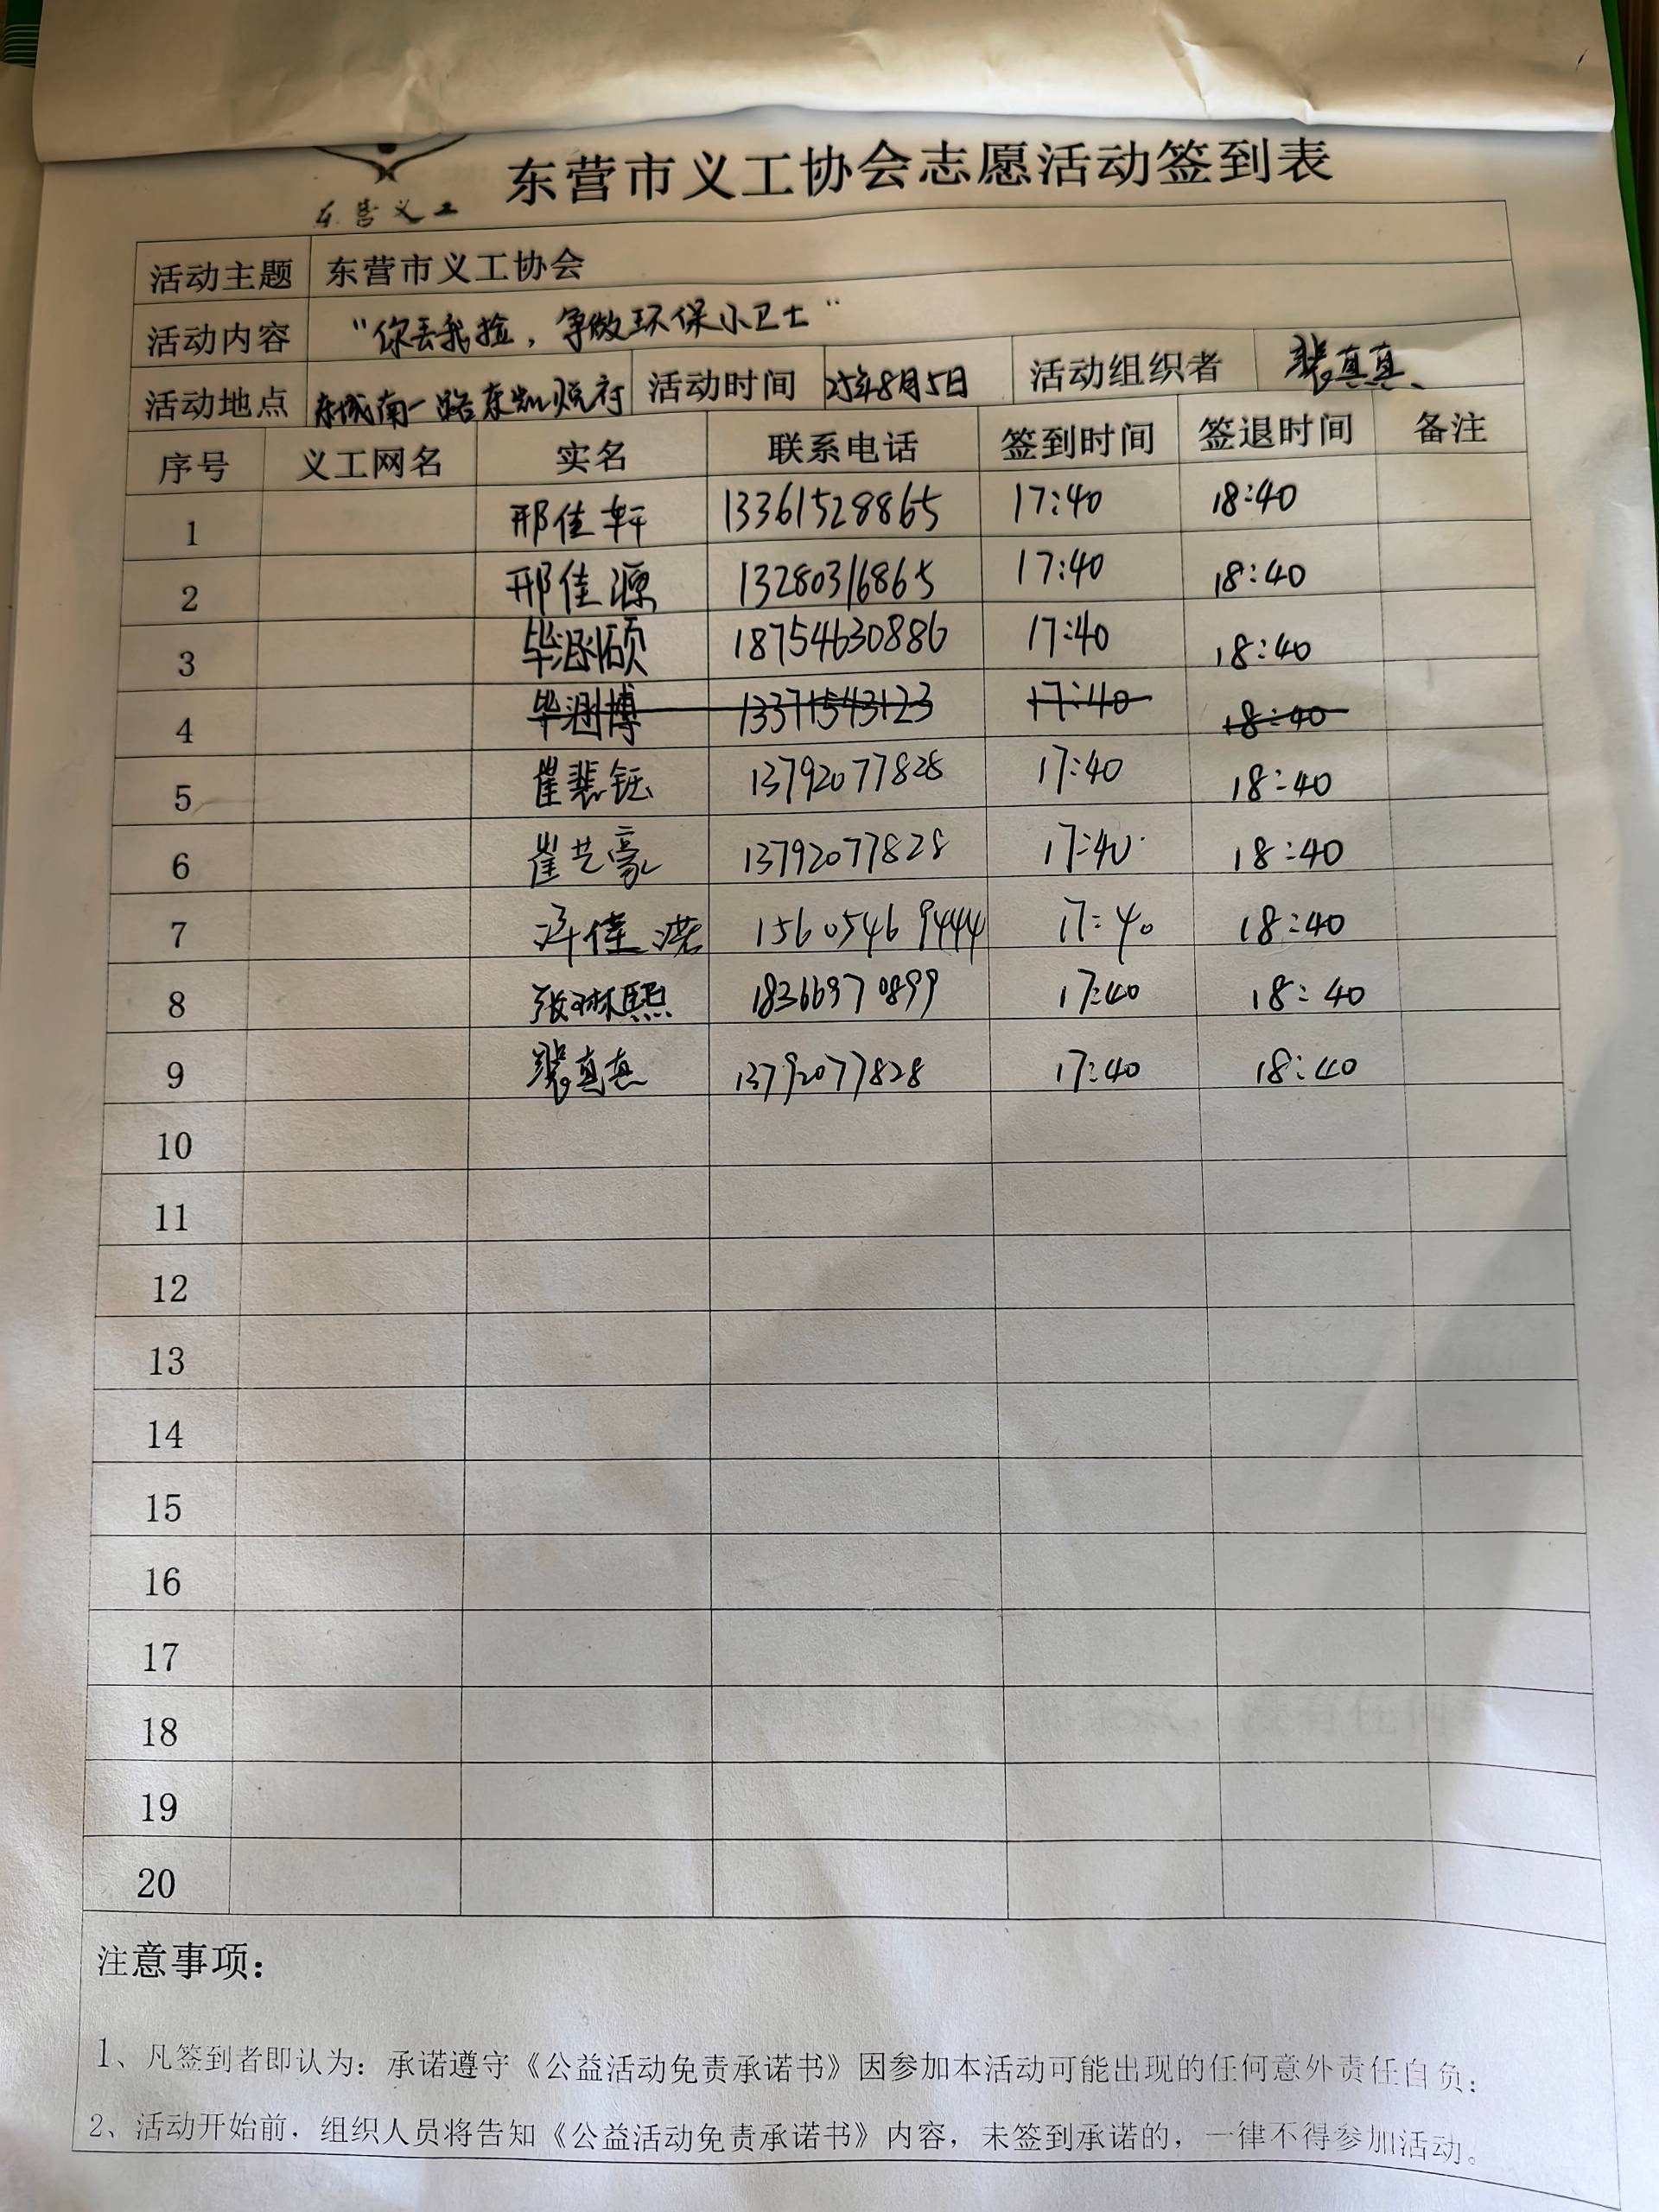 东营义工
东营市义工协会志愿活动签到表
活动主题 东营市义工协会
活动内容 “你丢我捡，争做环保小卫士”
活动地点 东城南一路东凯悦府 活动时间 25年8月5日 活动组织者 裴真真
序号 义工网名 实名 联系电话 签到时间 签退时间 备注
1 邢佳轩 13361528865 17:40 18:40
2 邢佳源 13280316865 17:40 18:40
3 毕涵硕 18754630886 17:40 18:40
4 毕涵博 13371543123 17:40 18:40
5 崔裴钰 13792077828 17:40 18:40
6 崔艺豪 13792077828 17:40 18:40
7 佳诺 15605469444 17:40 18:40
8 张琳熙 18366970899 17:40 18:40
9 裴真真 13792077828 17:40 18:40
10
11
12
13
14
15
16
17
18
19
20
注意事项：
1、凡签到者即认为：承诺遵守《公益活动免责承诺书》因参加本活动可能出现的任何意外责任自负；
2、活动开始前，组织人员将告知《公益活动免责承诺书》内容，未签到承诺的，一律不得参加活动。